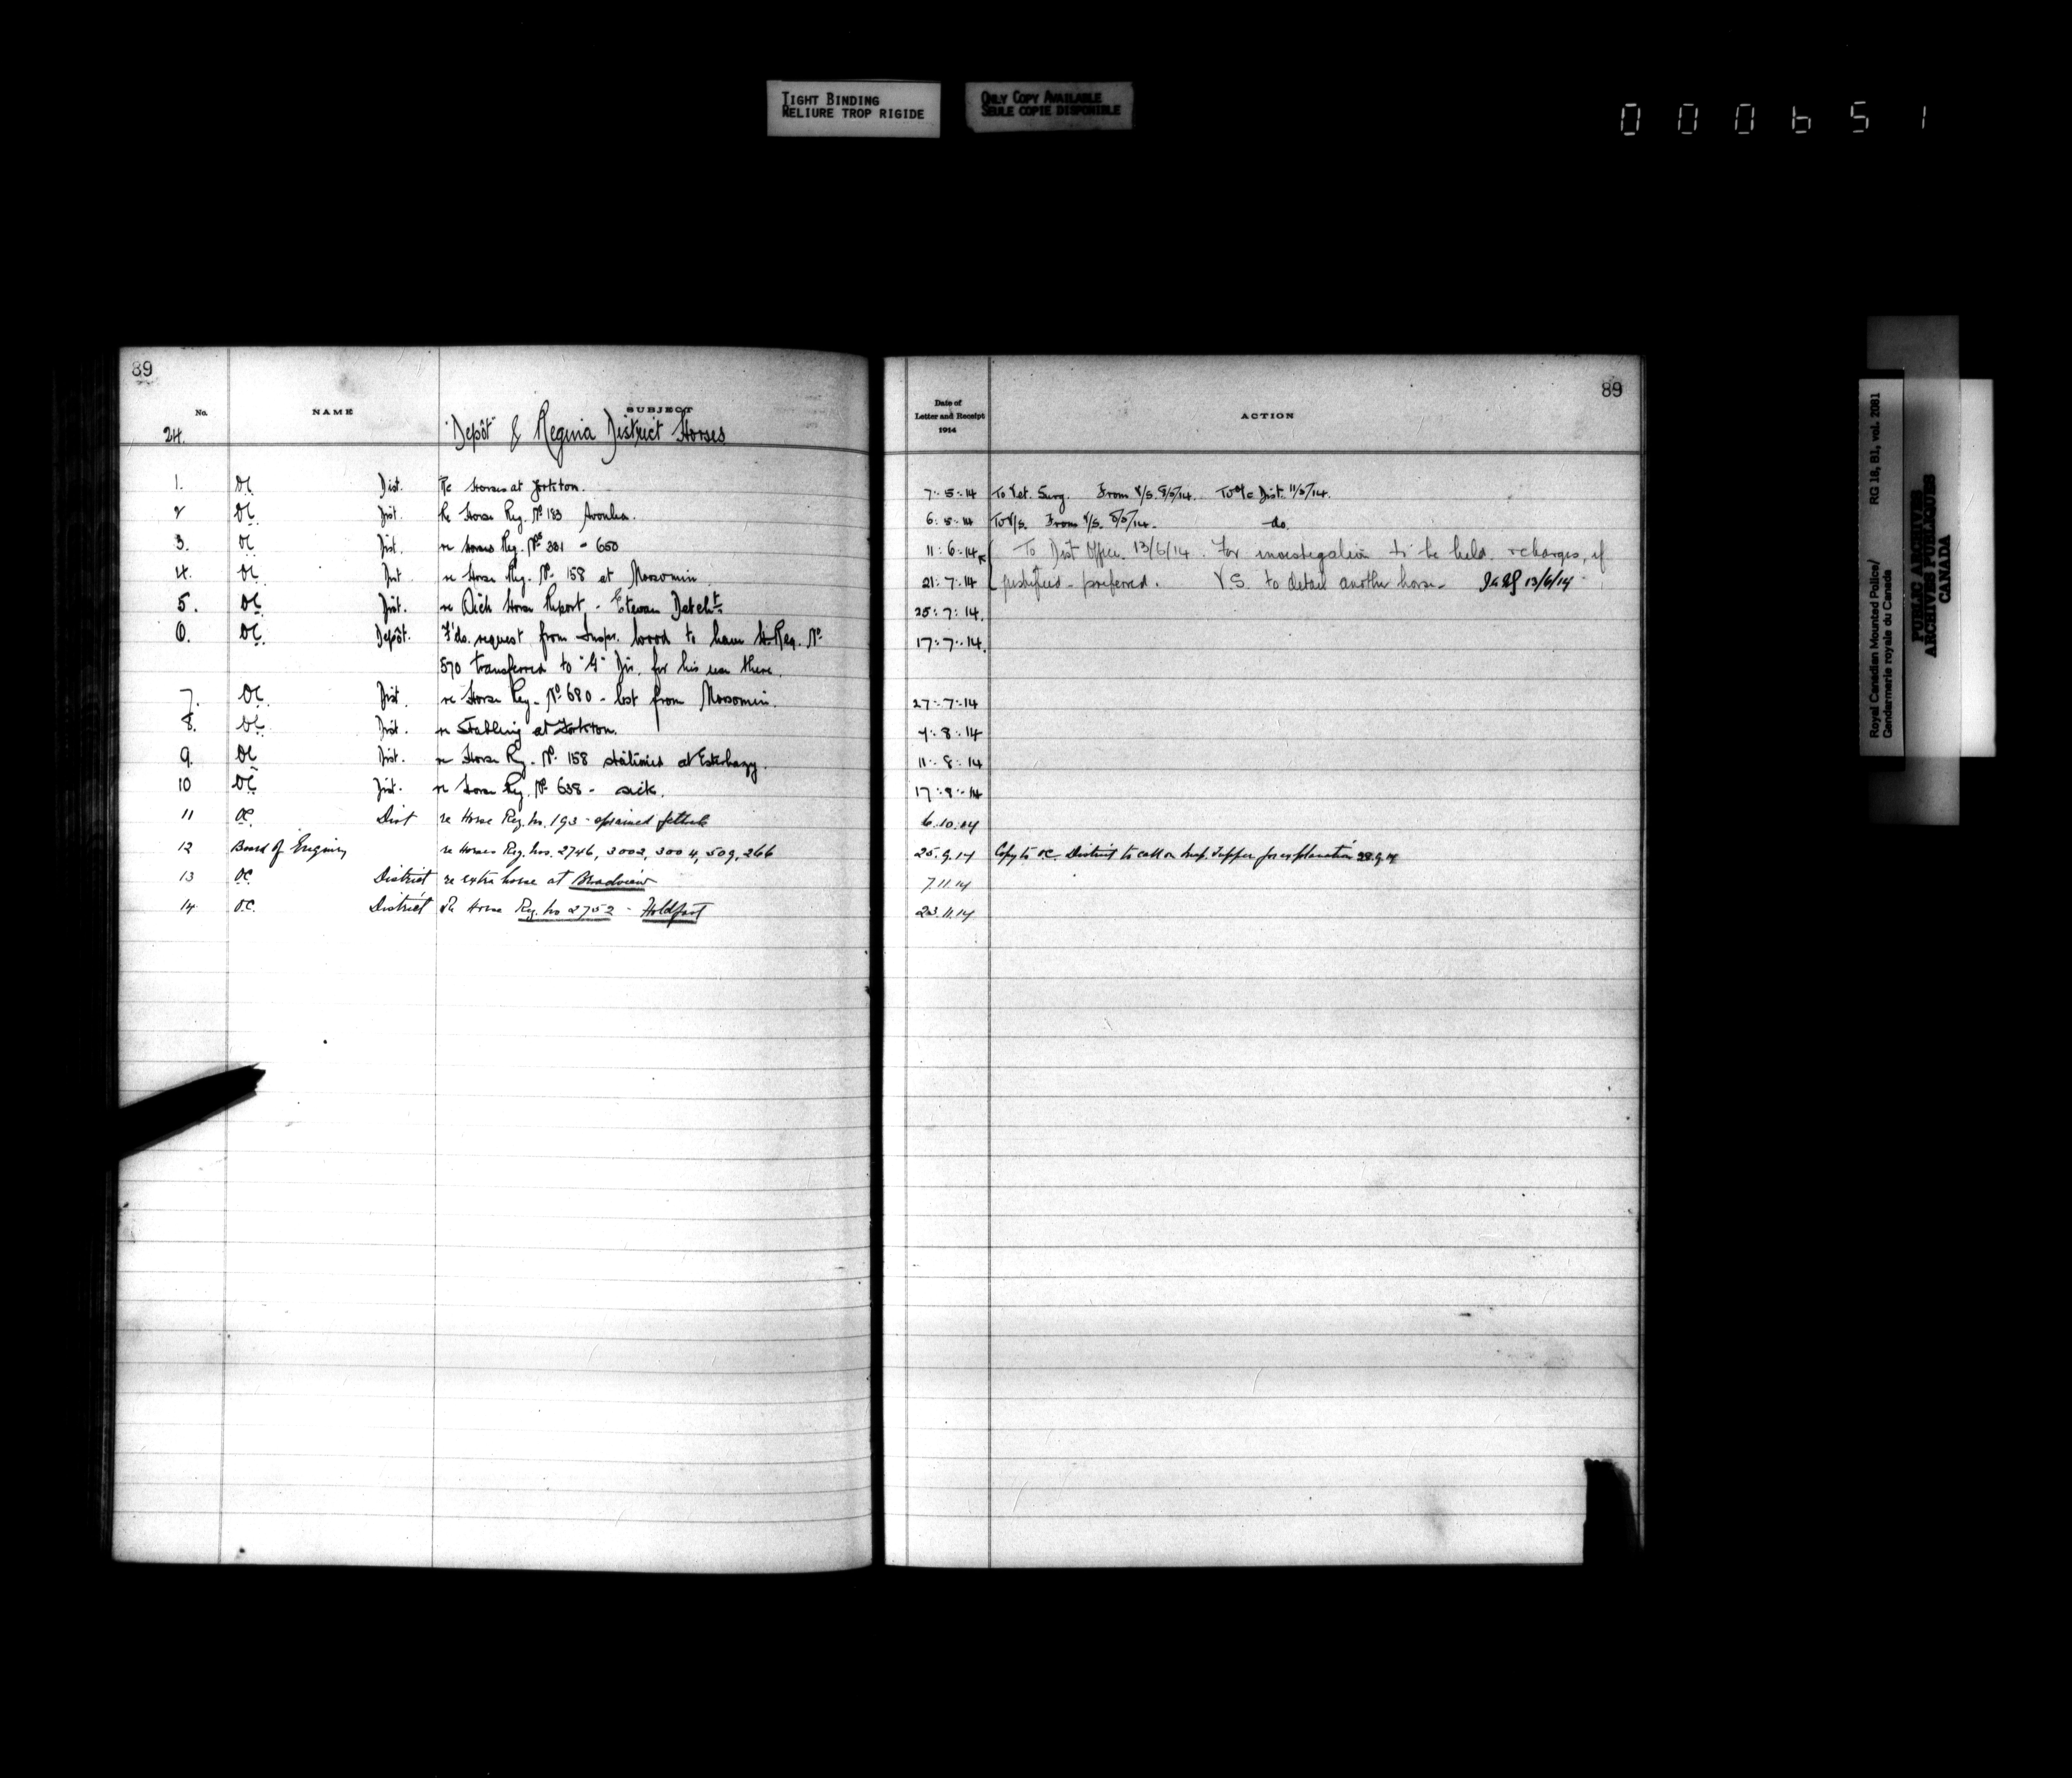 TIGHT BINDING
RELIURE TROP RIGIDE
ONLY COPY AVAILABLE
SEULE COPIE DISPONIBLE
000651
89
No. NAME SUBJECT
24. "Depôt" & Regina District Horses
1. OC. Dist. Re Horses at Yorkton.
2 OC. Dist. Re Horse Reg. No 183 Avonlea.
3. OC Dist. re Horses Reg. Nos 381 - 650
4. OC Dist. re Horse Reg. No. 158 at Moosomin.
5. OC. Dist. re Sick Horse Report - Estevan Detcht.
6. OC. Depôt. F'ds. request from Inspr. Wood to have H. Reg. No
570 transferred to "G" Div. for his use there.
7. OC. Dist. re Horse Reg. No 680 - lost from Moosomin.
8. OC. Dist. re Stabling at Yorkton.
9. OC Dist. re Horse Reg. No. 158 stationed at Esterhazy.
10 OC Dist. re Horse Reg. No 638 - sick.
11 OC. Dist re Horse Reg. No. 193 - sprained fetlock
12 Board of Enquiry re Horses Reg. Nos. 2746, 3002, 3004, 509, 266
13 OC. District re extra horse at Broadview
14 O.C. District Re Horse Reg. No 2752 - Holdfast
89
Date of
Letter and Receipt
1914
ACTION
7.5.14 To Vet. Surg. From V/S. 8/5/14. To O/C Dist. 11/5/14.
6.5.14 To V/S. From V/S. 8/5/14. do.
11.6.14 To Dist Officer. 13/6/14. For investigation to be held, & charges, if
21.7.14 justified - preferred. V.S. to detail another horse - 13/6/14
25.7.14.
17.7.14.
27.7.14
4.8.14
11.8.14
17.8.14
6.10.14
25.9.14 Copy to OC. District to call on Insp. Tupper for explanation 28.9.14
7.11.14
23.11.14
Royal Canadian Mounted Police/
Gendarmerie royale du Canada
RG 18, B1, vol. 2081
PUBLIC ARCHIVES
ARCHIVES PUBLIQUES
CANADA